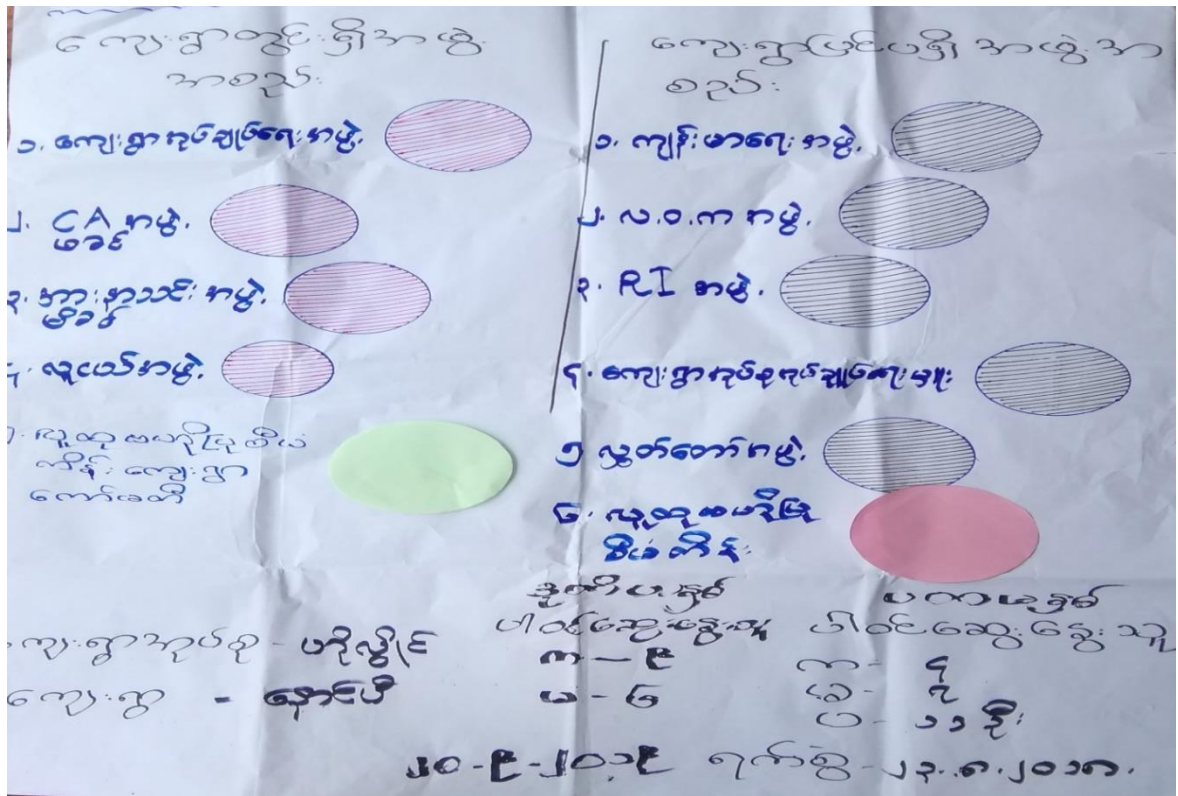 ကျေးရွာတွင်းရှိအဖွဲ့
အစည်း
၁. ကျေးရွာအုပ်ချုပ်ရေးအဖွဲ့.
၂. CA အဖွဲ့.
မခင်
၃. အားနာသင်းအဖွဲ့.
မိခင်
၄. လူငယ်အဖွဲ့.
လူထုဗဟိုပြုစီမံ
ကိန်း ကျေးရွာ
ကော်မတီ
ကျေးရွာပြင်ပရှိ အဖွဲ့အ
စည်း
၁. ကျန်းမာရေးအဖွဲ့.
၂. လ.ဝ.က အဖွဲ့.
၃. RI အဖွဲ့.
၄. ကျေးရွာအုပ်စုအုပ်ချုပ်ရေးမှူး
၅ လွှတ်တော်အဖွဲ့.
၆. လူထုဗဟိုပြု
စီမံကိန်း
ဒုတိယနှစ်
ပါဝင်ဆွေးနွေးသူ
က — ၉
မ - ၆
ပထမနှစ်
ပါဝင်ဆွေးနွေးသူ
က - ၄
မ - ၇
ပ - ၁၁ ဦး
ကျေးရွာအုပ်စု -
ကျေးရွာ - နောင်ပီ
၂၀-၉-၂၀၁၉ ရက်စွဲ - ၂၃.၈.၂၀၁၈.